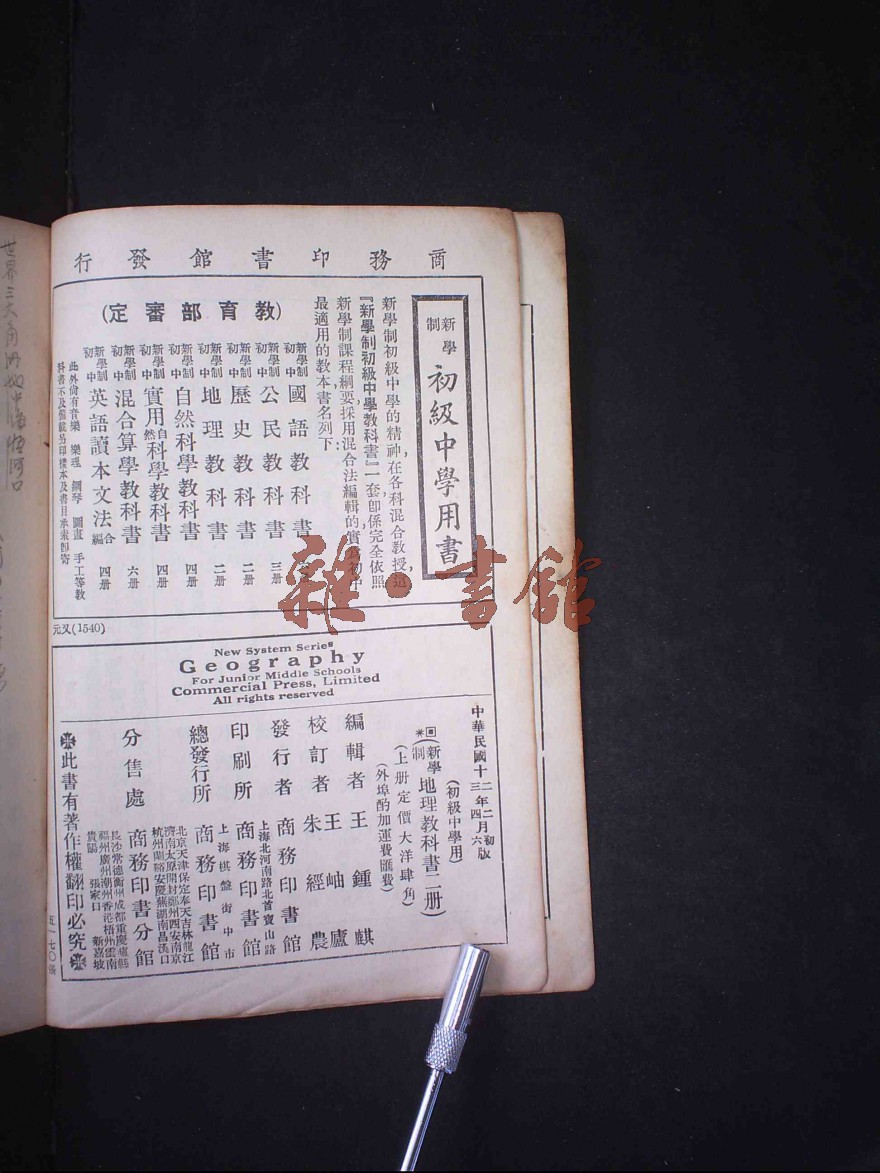 商務印書館發行
新學制
初級中學用書
新學制初級中學的精神,在各科混合教授,這
『新學制初級中學教科書』一套,卽係完全依照
新學制課程綱要,採用混合法編輯的,實爲初中
最適用的教本書名列下:
(教育部審定)
新學制初中 國語教科書
新學制初中 公民教科書 三册
新學制初中 歷史教科書 二册
新學制初中 地理教科書 二册
新學制初中 自然科學教科書 四册
新學制初中 實用自然科學教科書 四册
新學制初中 混合算學教科書 六册
新學制初中 英語讀本文法合編 四册
此外尚有音樂 樂理 鋼琴 圖畫 手工等教
科書不及備載另印樣本及書目承索卽寄
元又(1540)
New System Series
Geography
For Junior Middle Schools
Commercial Press, Limited
All rights reserved
中華民國十二年二月初版
三年四月六
(初級中學用)
(新學制地理教科書二册)
(上册定價大洋肆角)
(外埠酌加運費匯費)
編輯者 王鍾麒
校訂者 王岫廬 朱經農
發行者 商務印書館
上海北河南路北首寶山路
印刷所 商務印書館
上海棋盤街中市
總發行所 商務印書館
北京天津保定奉天吉林龍江
濟南太原開封鄭州西安南京
杭州蘭谿安慶蕪湖南昌漢口
分售處 商務印書分館
長沙常德衡州成都重慶瀘縣
福州廣州潮州香港梧州雲南
貴陽 張家口 新嘉坡
此書有著作權翻印必究
五一七〇張
世界三大
雜·書館